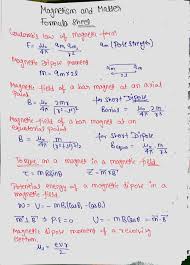 Magnetism and Matter
Formula Sheet
Coulomb's law of magnetic force
F = μ₀/4π qm₁ qm₂/r² qm (Pole Strength)
Magnetic Dipole moment
m = qm × 2l
Magnetic field of a bar magnet at an axial
point
for short Dipole
B = μ₀/4π 2mr/(r²-l²)²
Baxial = μ₀/4π 2m/r³
Magnetic field of a bar magnet at an
equatorial point
for short Dipole
B = μ₀/4π m/(r²+l²)^3/2
Bequa = μ₀/4π m/r³
Torque on a magnet in a magnetic field
τ = mB sinθ
Potential energy of a magnetic dipole in a
magnetic field
W = U = -mB(cosθ₂ - cosθ₁)
U = -mB cosθ =
Magnetic dipole moment of a revolving
electron
μ = evr/2